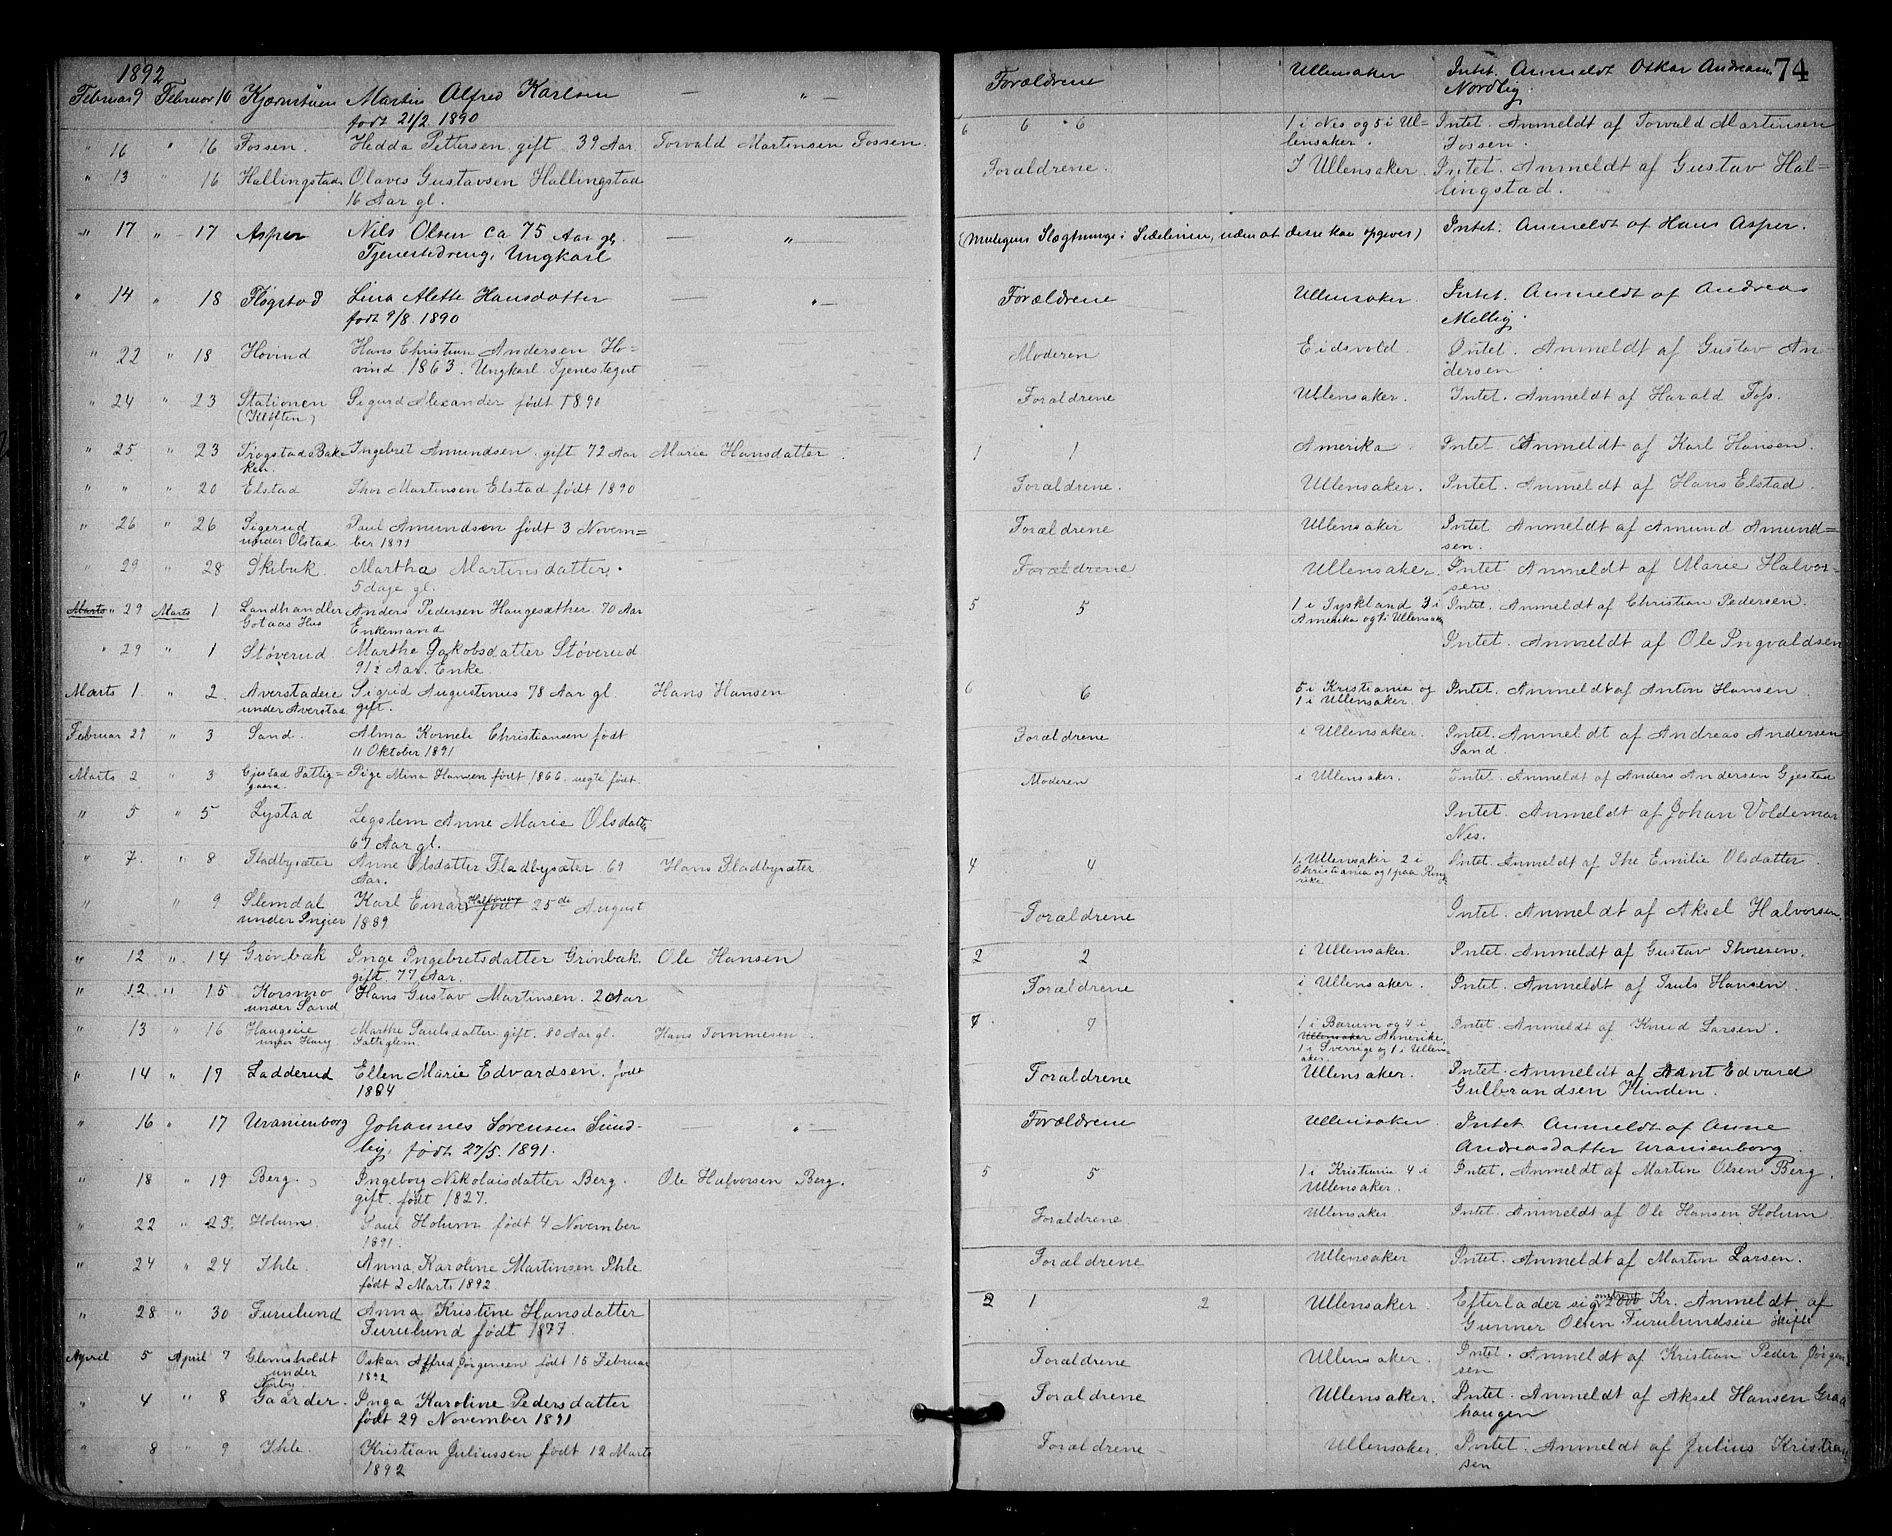 1892
74
Februar 9 Februar 10 Kjærnstuen Martin Alfred Karlsen — " — Forældrene Ullensaker Intet. Anmeldt Oskar Andreas
født 21/2 1890 Nordlig
" 16 " 16 Fossen. Hedda Pettersen gift 39 Aar Torvald Martinsen Fossen. 6 6 6 1 i Nes og 5 i Ul- Intet. Anmeldt af Torvald Martinsen
lensaker. Fossen.
" 13 " 16 Hallingstad Olaves Gustavsen Hallingstad Forældrene. I Ullensaker. Intet. Anmeldt af Gustav Hal-
16 Aar gl. lingstad.
" 17 " 17 Asper Nils Olsen ca 75 Aar gl. — " — (Muligens Slægtninge i Sidelinien, uden at disse kan opgives) Intet. Anmeldt af Hans Asper.
Tjenestedreng, Ungkarl
" 14 " 18 Fløgstad Lina Alette Hansdatter — " — Forældrene Ullensaker. Intet. Anmeldt af Andreas
født 9/8 1890 Mellig.
" 22 " 18 Hovind Hans Christian Andersen Ho- Moderen Eidsvold. Intet. Anmeldt af Gustav An
vind 1863. Ungkarl Tjenestegut dersen.
" 24 " 23 Stationen Sigurd Alexander født 1890 Forældrene Ullensaker. Intet. Anmeldt af Harald Foss.
(Kløften)
" 25 " 23 Trøgstad Bak- Ingebret Amundsen gift 72 Aar Marie Hansdatter 1 1 Amerika Intet Anmeldt af Karl Hansen.
ken.
" " " 20 Elstad Thor Martinsen Elstad født 1890 Forældrene. Ullensaker. Intet. Anmeldt af Hans Elstad.
" 26 " 26 Sigerud Paul Amundsen født 3 Novem= Forældrene Ullensaker Intet Anmeldt af Amund Amund=
under Olstad. ber 1891 sen.
" 29 " 28 Skibuk Martha Martinsdatter. Forældrene Ullensaker. Intet Anmeldt af Marie Halvor-
5 dage gl. sen
Marts " 29 Marts 1 Landhandler Anders Pedersen Haugesæther 70 Aar 5 5 1 i Tyskland 3 i Intet. Anmeldt af Christian Pedersen.
Gotaas Hus Enkemand Amerika og 1 i Ullensaker
" 29 " 1 Støverud. Marthe Jakobsdatter Støverud Intet. Anmeldt af Ole Ingvaldsen
91½ Aar. Enke.
Marts 1. " 2. Averstadeie Sigrid Augustinus 78 Aar gl. Hans Hansen 6 6 5 i Kristiania og Intet. Anmeldt af Anton Hansen
under Averstad. gift. 1 i Ullensaker.
Februar 27 " 3 Sand. Alma Korneli Christiansen født Forældrene i Ullensaker. Intet. Anmeldt af Andreas Andersen
11 Oktober 1891 Sand.
Marts 2 " 3 Gjestad Fattig= Pige Mina Hansen født 1866. uegte født. Moderen i Ullensaker. Intet. Anmeldt af Anders Andersen Gjestad
gaard.
" 5 " 5 Lystad Legslem Anne Marie Olsdatter Intet. Anmeldt af Johan Voldemar
67 Aar gl. Nes.
" 7. " 8 Fladbysæter Anne Olsdatter Fladbysæter 69 Hans Fladbysæter 4 4 1 i Ullensaker 2 i Intet. Anmeldt af Emilie Olsdatter
Aar. Christiania og 1 paa Ring-
rike
" " 9 Slemdal Karl Einar Halvorsen født 25de August Forældrene Intet. Anmeldt af Aksel Halvorsen.
under Ingier 1889
" 12 " 14 Grønbæk Inge Ingebretsdatter Grønbæk. Ole Hansen 2 2 i Ullensaker. Intet. Anmeldt af Gustav Thoresen.
gift. 77 Aar.
" 12 " 15 Korsmo Hans Gustav Martinsen. 2 Aar Forældrene i Ullensaker. Intet. Anmeldt af Truls Hansen.
under Sand
" 13 " 16 Haugseie Marthe Paulsdatter gift. 80 Aar gl. Hans Tommesen 7. 7 1 i Bærum og 4 i Intet. Anmeldt af Knud Larsen.
under Haug Fattiglem. Ullensaker Amerike,
1 i Sverrige og 1 i Ullen-
saker.
" 14 " 19 Ladderud Ellen Marie Edvardsen. født Forældrene Ullensaker. Intet. Anmeldt af Arnt Edvard
1884 Gulbrandsen Hinden.
" 16 " 17 Uranienborg Johannes Sørensen Sund- — " — Forældrene Ullensaker. Intet Anmeldt af Anne
lig, født 27/5 1891. Andreasdatter Uranienborg
" 18 " 19 Berg. Ingeborg Nikolaisdatter Berg. Ole Halvorsen Berg. 5 5 1 i Kristiania 4 i Intet. Anmeldt af Martin Olsen Berg.
gift. født 1827. Ullensaker.
" 22 " 23. Holum. Paul Holum født 4 November Forældrene Ullensaker Intet. Anmeldt af Ole Hansen Holum.
1891.
" 24 " 24 Ihle. Anna Karoline Martinsen Ihle Forældrene Ullensaker Intet. Anmeldt af Martin Larsen.
født 2 Marts 1892
" 28 " 30 Furulund Anna Kristine Hansdatter 2 1 2 Ullensaker. Efterlader sig 2000 Kr. Anmeldt af
Furulund født 1877. Gunner Olsen Furulundseie Skifte
April 5 April 7 Glemsholdt Oskar Alfred Jørgensen født 15 Februar Forældrene Ullensaker. Intet. Anmeldt af Kristian Peder Jørgen
under 1892 sen
Nærby
" 4 " 8 Gaarder. Inga Karoline Pedersdatter Forældrene Ullensaker. Intet. Anmeldt af Aksel Hansen Graa
født 29 November 1891 haugen
" 8 " 9 Ihle. Kristian Juliussen født 12 Marts Forældrene Ullensaker. Intet. Anmeldt af Julius Kristian
1892 sen